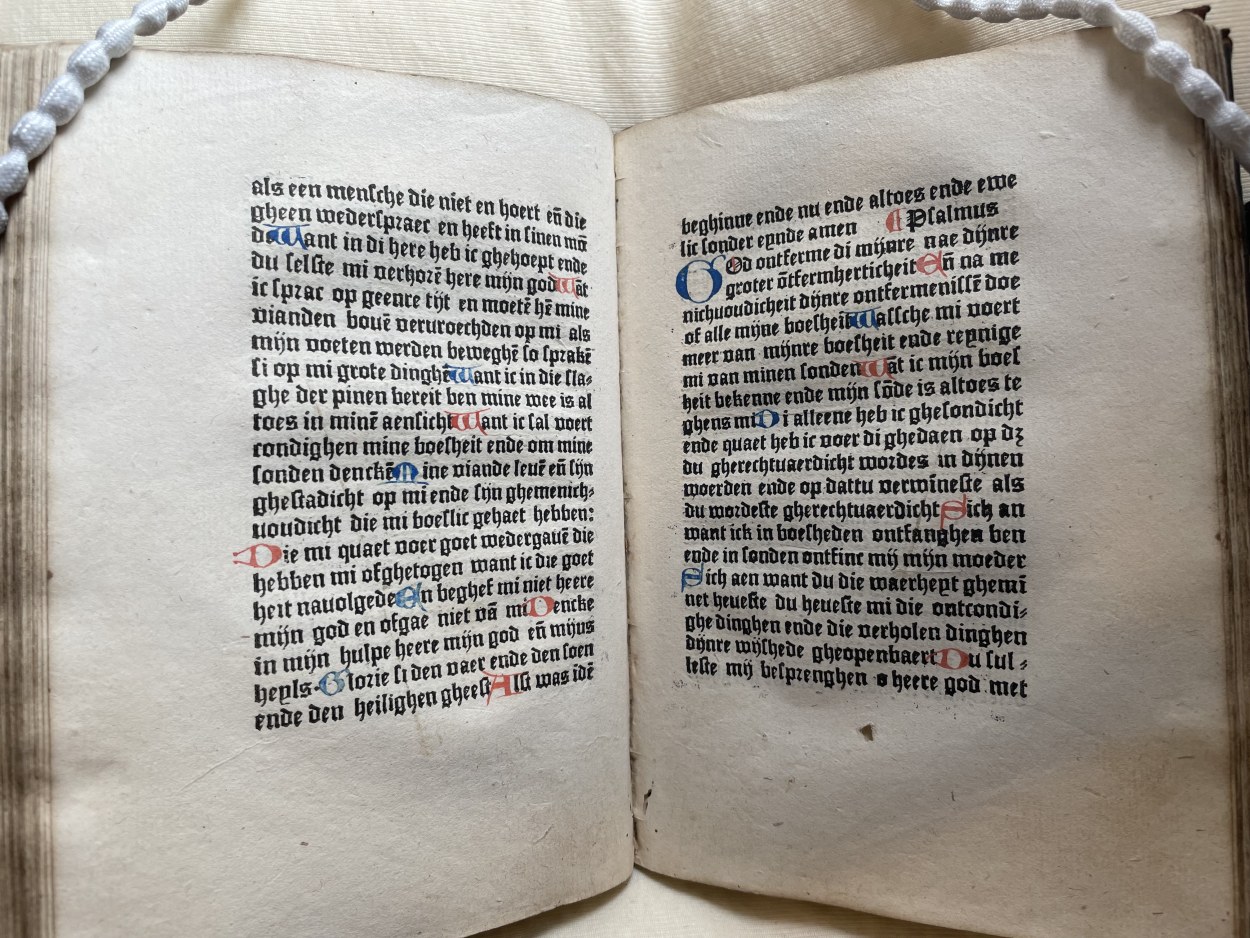 als een mensche die niet en hoert eñ die
gheen wederspraec en heeft in sinen mō
de Want in di here heb ic ghehoept ende
du selste mi verhorē here mijn god Wāt
ic sprac op geenre tijt en moetē hē mine
vianden bouē veruroechden op mi als
mijn voeten werden beweghē so sprakē
si op mi grote dinghē Want ic in die sla⸗
ghe der pinen bereit ben mine wee is al
toes in minē aensicht Want ic sal voert
condighen mine boesheit ende om mine
sonden denckē Mine viande leuē eñ sijn
ghestadicht op mi ende sijn ghemenich⸗
uoudicht die mi boeslic gehaet hebben:
Die mi quaet voer goet wedergauē die
hebben mi ofghetogen want ic die goet
heit nauolgede En beghef mi niet heere
mijn god en ofgae niet vā mi Dencke
in mijn hulpe heere mijn god eñ mijns
heyls. Glorie si den vaer ende den soen
ende den heilighen gheest Alst was idē
beghinne ende nu ende altoes ende ewe
lic sonder eynde amen ¶ Psalmus
GOd ontferme di mijnre nae dijnre
groter ōtfermherticheit Eñ na me
nichuoudicheit dijnre ontfermenissē doe
of alle mijne boesheit Wassche mi voert
meer van mijnre boesheit ende reynige
mi van minen sonden Wāt ic mijn boes
heit bekenne ende mijn sōde is altoes te
ghens mi Di alleene heb ic ghesondicht
ende quaet heb ic voer di ghedaen op dꝫ
du gherechtuaerdicht wordes in dijnen
woerden ende op dattu verwīneste als
du wordeste gherechtuaerdicht Sich an
want ick in boesheden ontfanghen ben
ende in sonden ontfinc mij mijn moeder
Sich aen want du die waerheyt ghemī
net heueste du heueste mi die ontcondi⸗
ghe dinghen ende die verholen dinghen
dijnre wijshede gheopenbaert Du sul⸗
leste mij besprenghen o heere god met